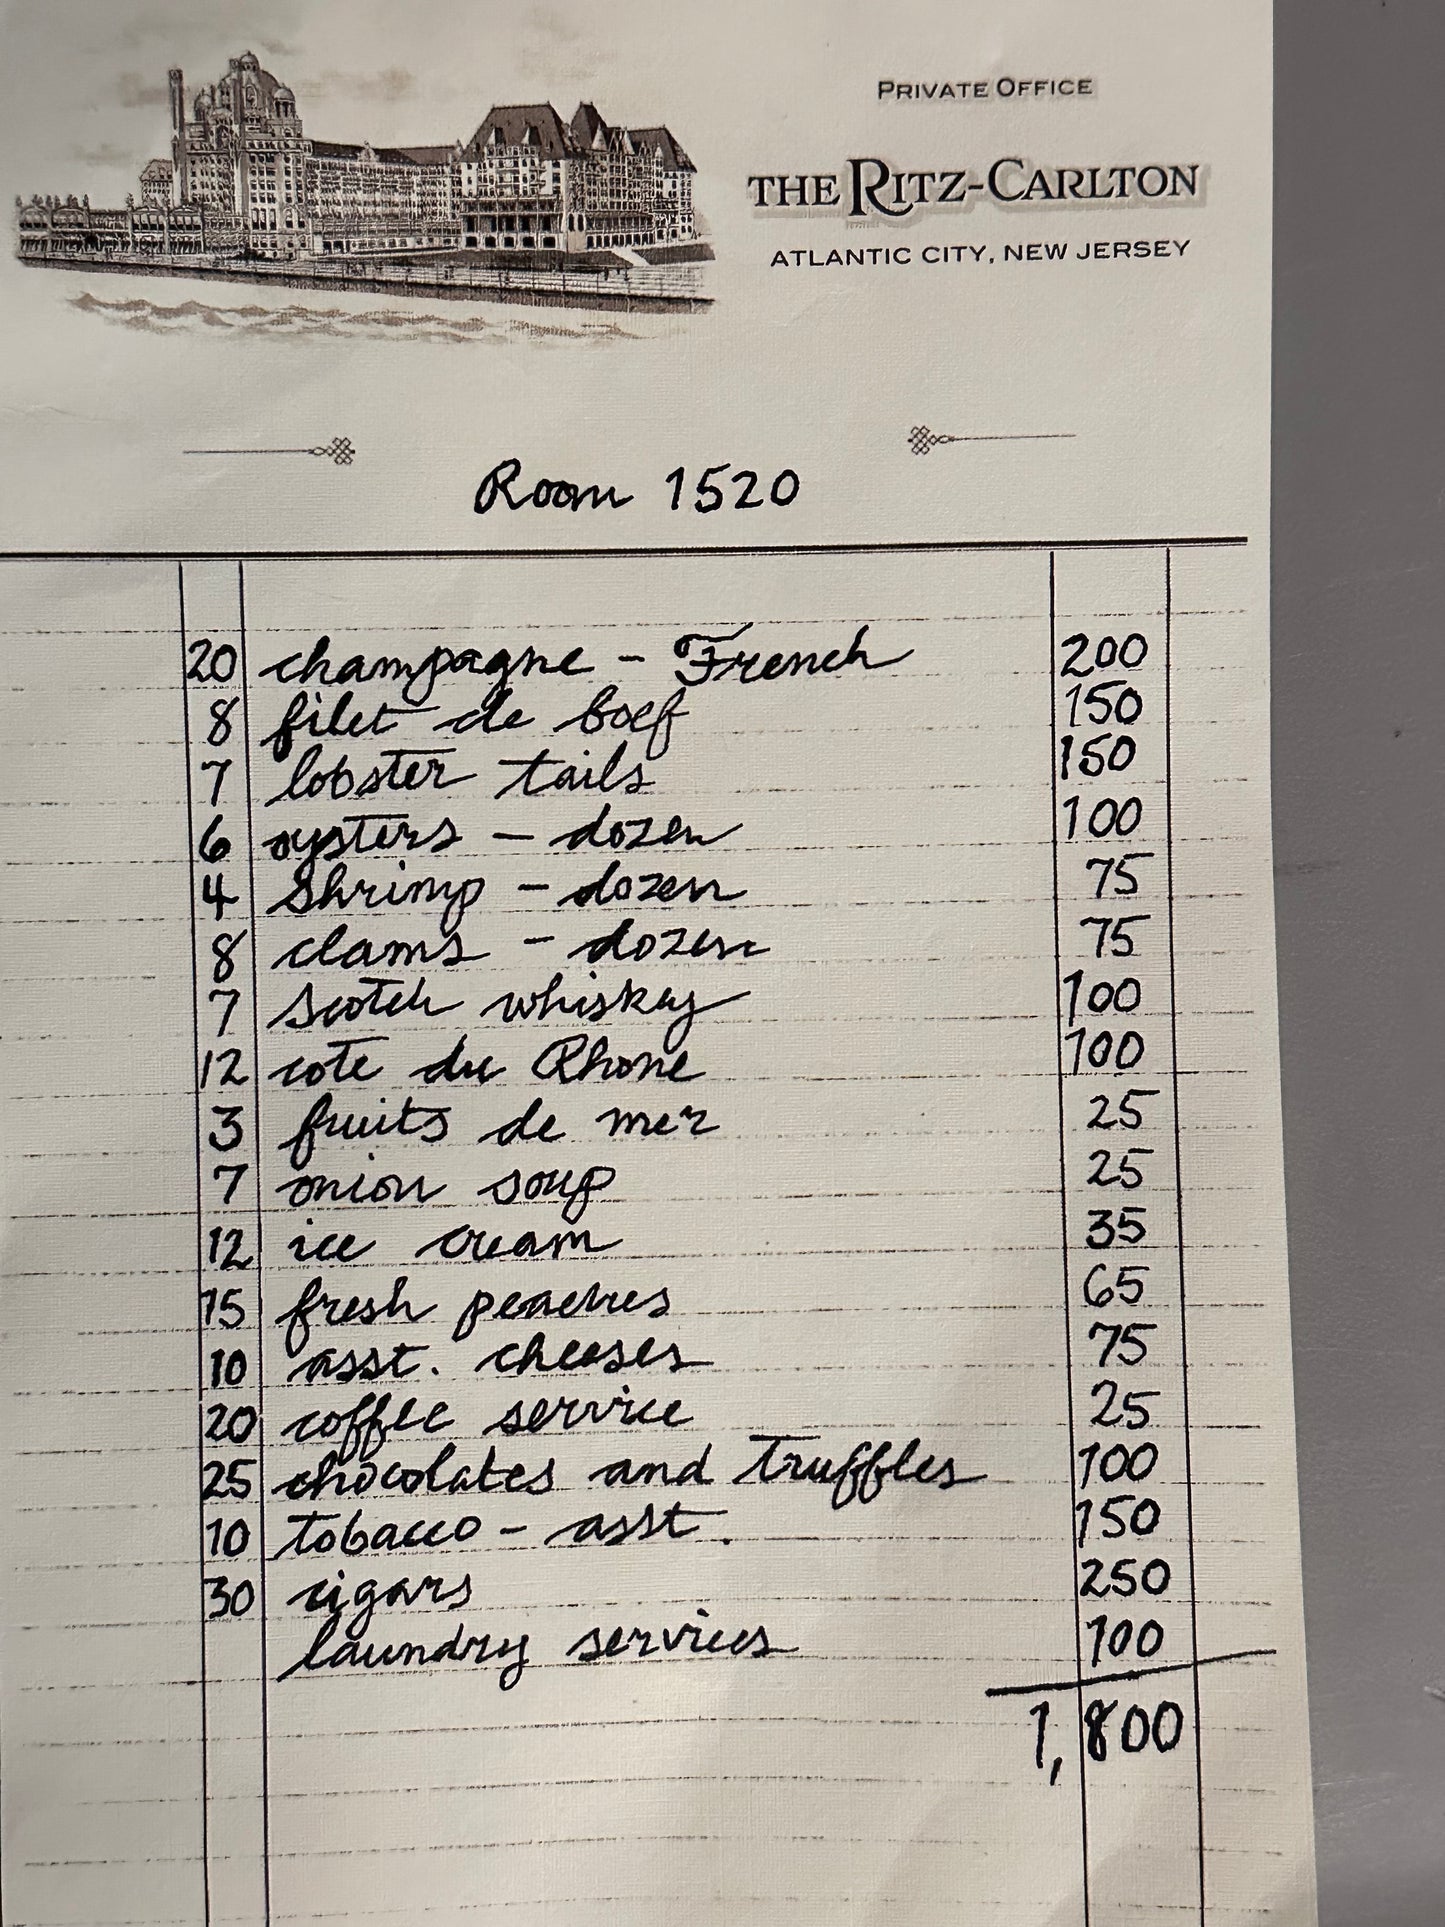 PRIVATE OFFICE
THE RITZ-CARLTON
ATLANTIC CITY, NEW JERSEY
Room 1520
20 champagne - French 200
8 filet de boef 150
7 lobster tails 150
6 oysters - dozen 100
4 Shrimp - dozen 75
8 clams - dozen 75
7 Scotch whiskey 100
12 cote du Rhone 100
3 fruits de mer 25
7 onion soup 25
12 ice cream 35
15 fresh peaches 65
10 asst. cheeses 75
20 coffee service 25
25 chocolates and truffles 100
10 tobacco - asst. 150
30 cigars 250
laundry services 100
1,800